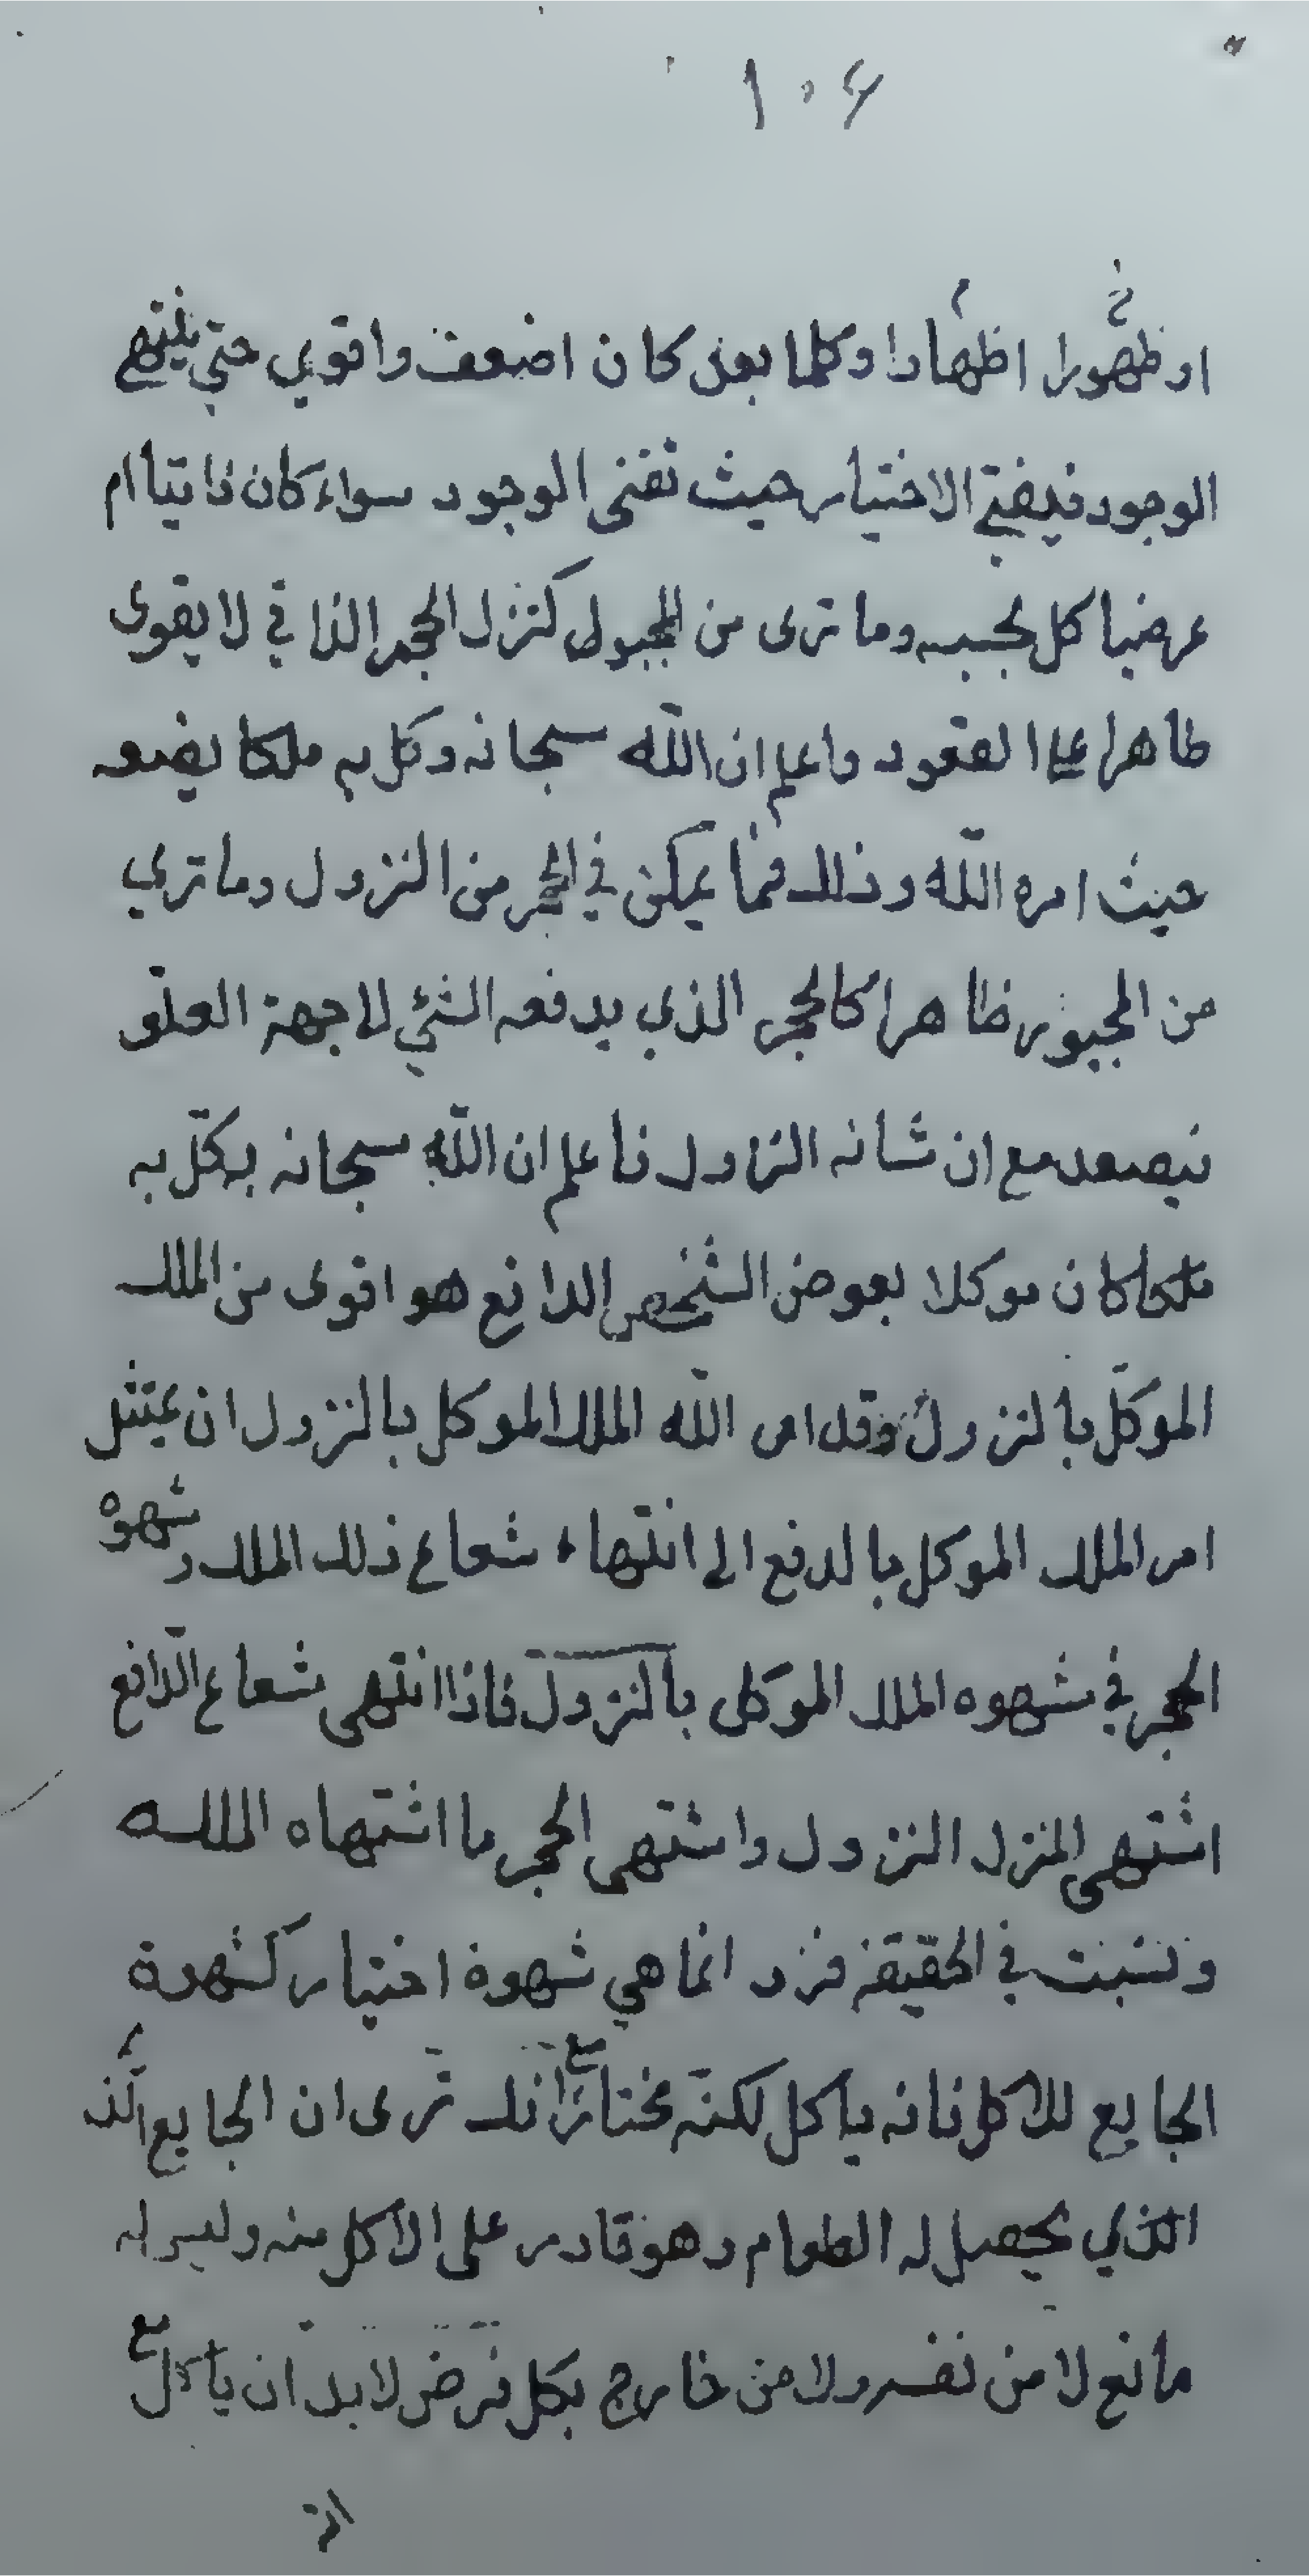 ١٠٦
او ظهورا اظهارا وكلما بعد كان اضعف واقوي حتي ينتهي
الوجود فيفنى الاختيار حيث تفنى الوجود سواء كان ذاتيا ام
عرضيا كل بحسبه وما ترى من المجبول كنزل الحجر الذا في لا يقوى
ظاهرا على العقود واعلم ان الله سبحانه وكل به ملكا يضعه
حيث امره الله وذلك فما يمكن في الحجر من النزول وما تري
من المجبور ظاهرا كالحجر الذي يدفعه الشئي لا جهة العلو
فيصعد مع ان شانه النزول فاعلم ان الله سبحانه يكل به
ملكا كان موكلا بعوض الشخص الدافع هو اقوى من الملك
الموكل بالنزول وقد امر الله الملك الموكل بالنزول ان يمتثل
امر الملك الموكل بالدفع الى انتهاء شعاع ذلك الملك وشهوه
الحجر في شهوه الملك الموكل بالنزول فاذا انتهى شعاع الدافع
اشتهى المنزل النزول واشتهى الحجر ما اشتهاه الملك
ونسبت في الحقيقة انما هي شهوة اختيار كشهوة
الجايع للاكل فانه ياكل لكنه مختار مع انك ترى ان الجايع الذ
الذي يحصل له الطعام وهو قادر على الاكل منه وليس له
مانع لا من نفسه ولا من خارج بكل فرض لا بد ان ياكل مع